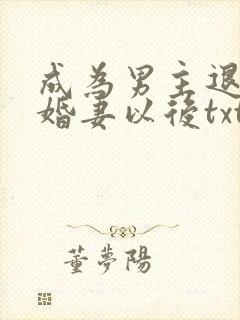 成為男主退
婚妻以後txt
董夢陽